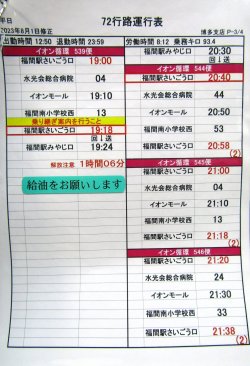 72行路運行表
平日
2023年6月1日修正
博多支店 P-3/4
出勤時間 12:50 退勤時間 23:59
労働時間 8:12 乗務キロ 93.4
イオン循環 539便
福間駅さいごう口 19:00
水光会総合病院 04
イオンモール 19:10
福間南小学校西 13
乗り継ぎ案内を行うこと
福間駅さいごう口 19:18
回↓送
福間駅みやじ口 19:24
解放注意 1時間06分
給油をお願いします
福間駅みやじ口 20:30
回↓送
イオン循環 544便
福間駅さいごう口 20:40
水光会総合病院 44
イオンモール 20:50
福間南小学校西 53
福間駅さいごう口 20:58
(2)
イオン循環 545便
福間駅さいごう口 21:00
水光会総合病院 04
イオンモール 21:10
福間南小学校西 13
福間駅さいごう口 21:18
(2)
イオン循環 546便
福間駅さいごう口 21:20
水光会総合病院 24
イオンモール 21:30
福間南小学校西 33
福間駅さいごう口 21:38
(2)